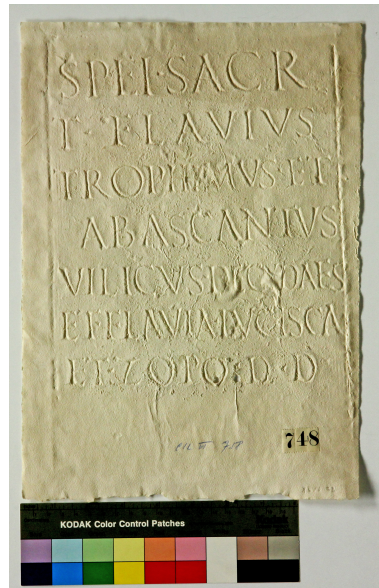 SPEI·SACR
T·FLAVIVS
TROPHIMVS·ET·
ABASCANTVS
VILICVS
ET FLAVIA LYCISCA
ET·ZOTO·D·D
748
KODAK Color Control Patches